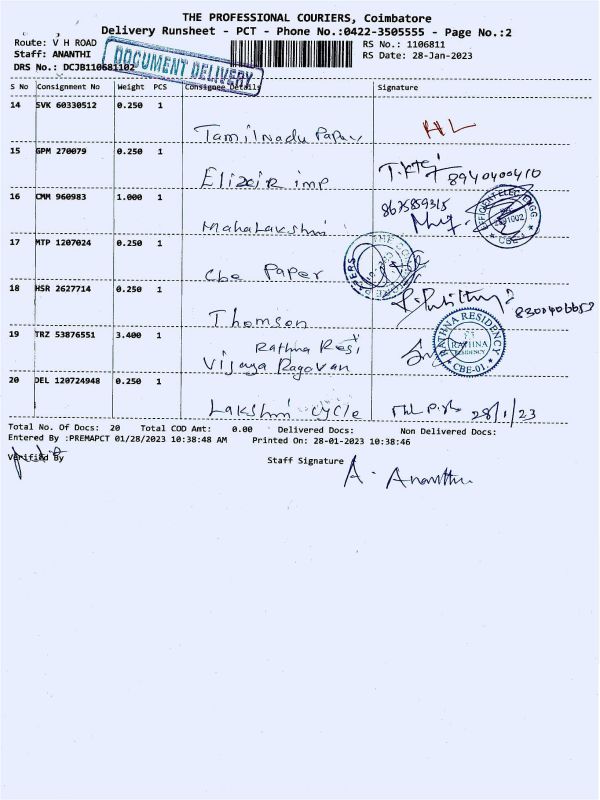 THE PROFESSIONAL COURIERS, Coimbatore
Delivery Runsheet - PCT - Phone No.:0422-3505555 - Page No.:2
Route: V H ROAD
RS No.: 1106811
Staff: ANANTHI
RS Date: 28-Jan-2023
DRS No.: DCJB1106811102
DOCUMENT DELIVERY
S No Consignment No Weight PCS Consignee Details Signature
14 SVK 60330512 0.250 1
Tamilnadu Paper HL
15 GPM 270079 0.250 1
Elixir imp 8940400410
16 CMM 960983 1.000 1
8675859315
Mahalakshmi
CBE-1
17 MTP 1207024 0.250 1
Cbe Paper
PAPERS
18 HSR 2627714 0.250 1
Thomson
19 TRZ 53876551 3.400 1
Rathna Resi
Vijaya Ragovan
RATHNA RESIDENCY
RATHNA
RESIDENCY
CBE-01.
20 DEL 120724948 0.250 1
Lakshmi cycle 28/1/23
Total No. Of Docs: 20 Total COD Amt: 0.00 Delivered Docs: Non Delivered Docs:
Entered By :PREMAPCT 01/28/2023 10:38:48 AM Printed On: 28-01-2023 10:38:46
Verified By
Staff Signature
A. Ananthi